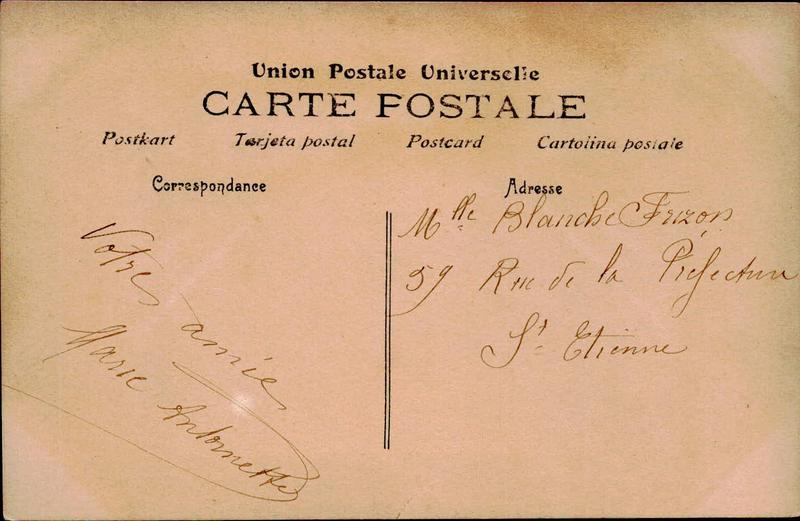 Union Postale Universelle
CARTE POSTALE
Postkart Tarjeta postal Postcard Cartolina postale
Correspondance
Adresse
Votre amie
Marie Antoinette
Mlle Blanche Frizon
59 Rue de la Préfecture
St Etienne